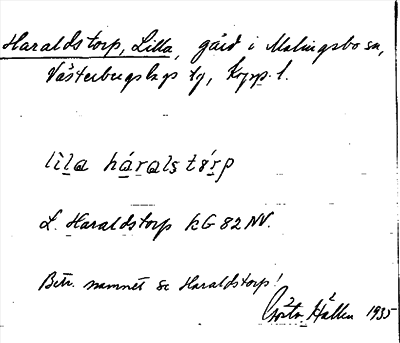 Haraldstorp, Lilla, gård i Malingsbo sn,
Västerbergslags tg, Kopp. l.
lila háralstórp
L. Haraldstorp kG 82 NV.
Betr. namnet se Haraldstorp!
Hállén 1935